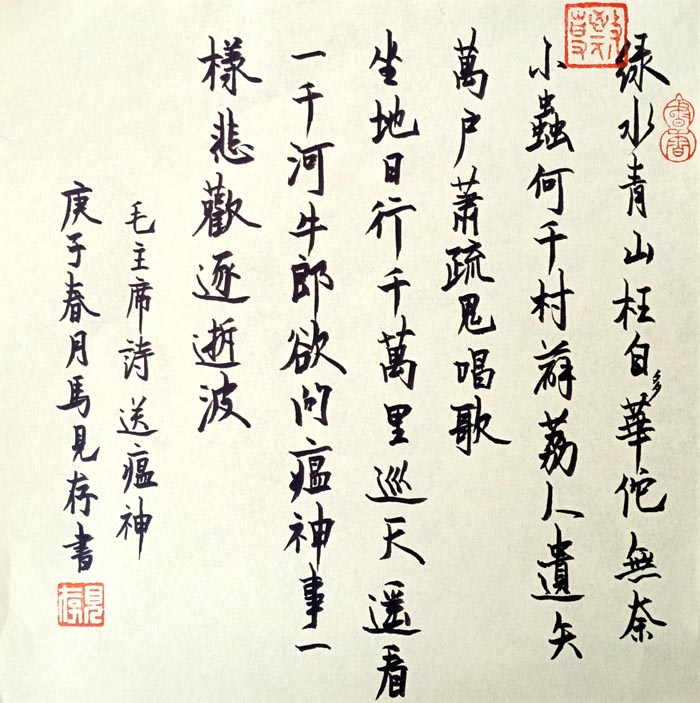 绿水青山枉自多華佗無奈
小蟲何千村薜荔人遺矢
萬户蕭疏鬼唱歌
坐地日行千萬里巡天遥看
一千河牛郎欲问瘟神事一
樣悲歡逐逝波
毛主席詩 送瘟神
庚子春月馬見存書
見存
書香